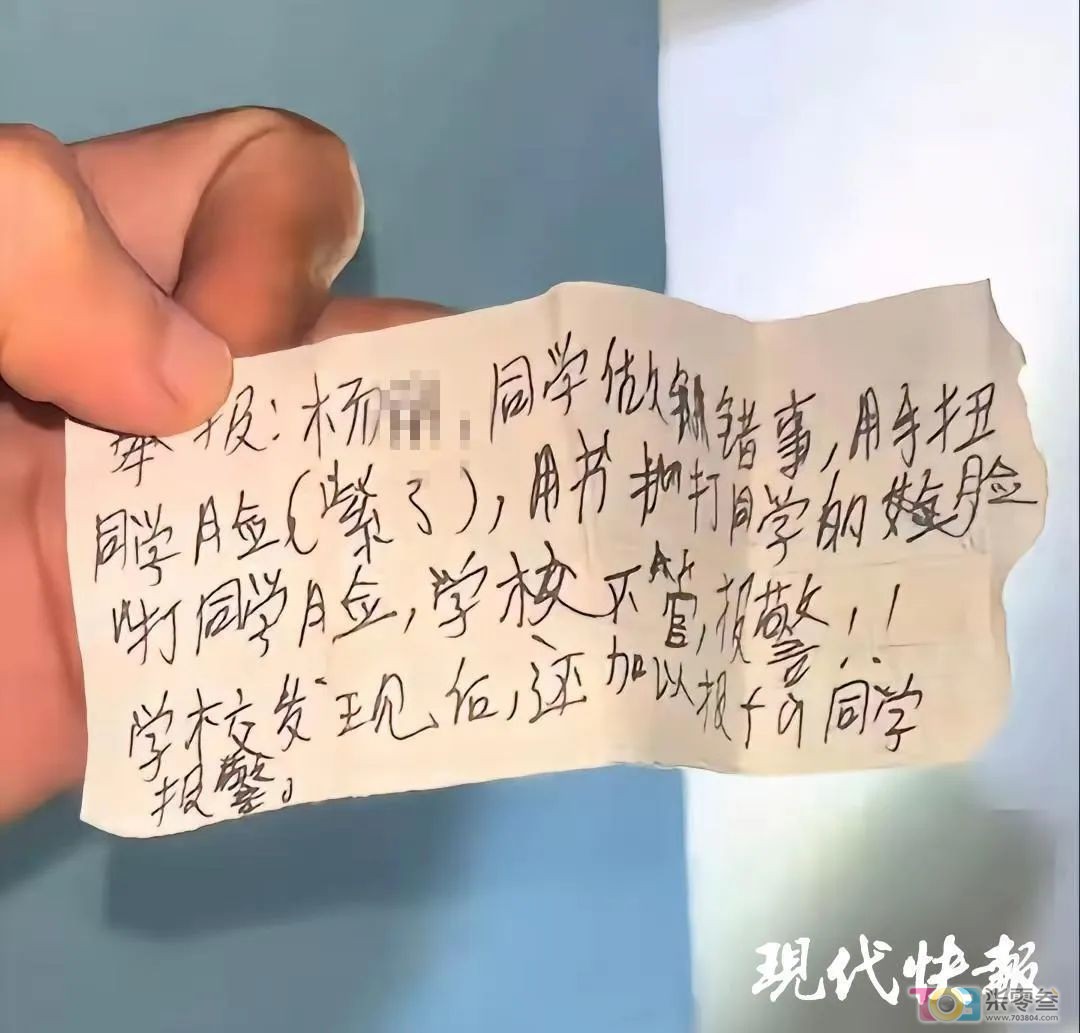 举报:杨 同学做错事,用手扭
同学脸(紫了),用书抽打同学的脸
叫打同学脸,学校不管,报警!!
学校发现后,还加以报fa同学
报警。
现代快報
703
柒零叁
www.703804.com